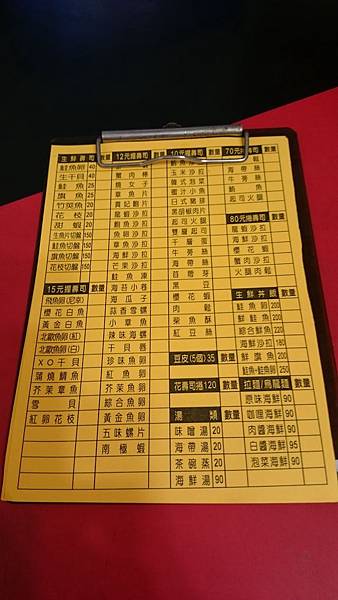 生鮮壽司 數量
鮭魚卵 40
生干貝 40
鮭魚 25
旗魚 25
竹筴魚 20
花枝 20
甜蝦 20
生魚片切盤 150
鮭魚切盤 150
旗魚切盤 150
花枝切盤 150
15元握壽司 數量
飛魚卵(尼京)
櫻花白魚
黃金白魚
北歐魚卵(紅)
北歐魚卵(白)
XO干貝
蒲燒鯛魚
芥茉章魚
雪貝
紅卵花枝
12元握壽司 數量
蟹肉棒
燒女子
章魚片
貴妃鮑片
龍蝦沙拉
鮑魚沙拉
魚卵沙拉
章魚沙拉
海鮮沙拉
芒果沙拉
鮭魚凍
海苔小卷
海瓜子
蒜香雪螺
小章魚
辣味海螺
干貝唇
珍味魚卵
紅魚卵
芥茉魚卵
綜合魚卵
黃金魚卵
五味螺片
南極蝦
10元握壽司 數量
玉米沙拉
韓式泡菜
蜜汁小魚
日式豬排
黑胡椒肉片
起司火腿
雙層起司
千層蛋
牛蒡絲
海帶絲
苜蓿芽
黑豆
櫻花蝦
肉鬆
柴魚酥
紅豆絲
豆皮(5個)35 數量
花壽司捲120 數量
湯類 數量
味噌湯 20
魚湯 20
茶碗蒸 20
海鮮湯 90
70元捲壽司 數量
肉鬆
海帶絲
牛蒡絲
鮪魚
起司火腿
80元捲壽司 數量
龍蝦沙拉
海鮮沙拉
櫻花蝦
蟹肉沙拉
火腿肉鬆
生鮮丼飯 數量
鮭魚卵 200
鮮鮭魚 200
綜合鮮魚 200
海鮮沙拉 180
鮮旗魚 200
鮭魚+鮭魚卵 250
拉麵/烏龍麵 數量
原味海鮮 90
咖哩海鮮 90
肉醬海鮮 90
白醬海鮮 95
泡菜海鮮 90